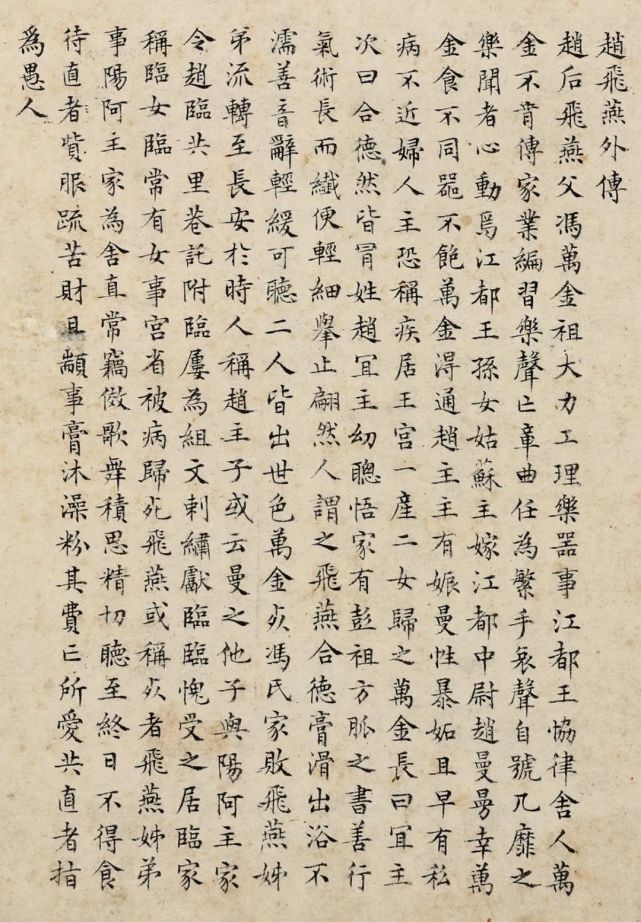 趙飛燕外傳
趙后飛燕父馮萬金祖大力工理樂器事江都王協律舍人萬
金不肯傳家業編習樂聲亡章曲任為繁手哀聲自號凡靡之
樂聞者心動焉江都王孫女姑蘇主嫁江都中尉趙曼曼幸萬
金食不同器不飽萬金得通趙主主有娠曼性暴妬且早有私
病不近婦人主恐稱疾居王宮一產二女歸之萬金長曰宜主
次曰合德然皆冐姓趙宜主幼聰悟家有彭祖方脈之書善行
氣術長而纖便輕細舉止翩然人謂之飛燕合德膏滑出浴不
濡善音辭輕緩可聽二人皆出世色萬金歿馮氏家敗飛燕姊
弟流轉至長安於時人稱趙主子或云曼之他子與陽阿主家
令趙臨共里巷託附臨屢為組文刺繡獻臨臨愧受之居臨家
稱臨女臨常有女事宮省被病歸死飛燕或稱歿者飛燕姊弟
事陽阿主家為舍直常竊倣歌舞積思精切聽至終日不得食
待直者貲服疏苦財且顓事膏沐澡粉其費亡所愛共直者指
為愚人